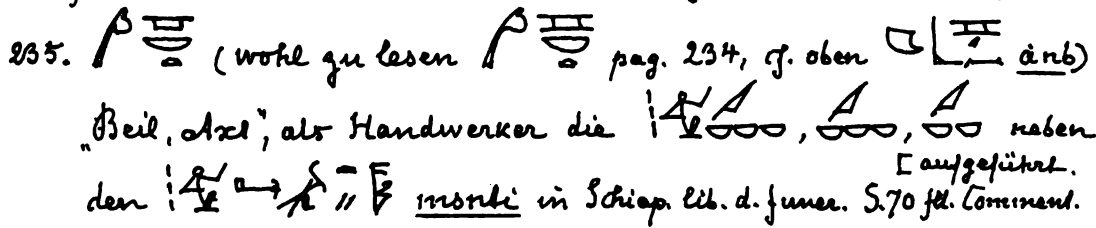 235. (wohl zu lesen pag. 234, cf. oben ȧnb)
„Beil, Axt“, als Handwerker die , , neben
[aufgeführt.
den msnti in Schiap. lib. d. funer. S. 70 fd. Comment.